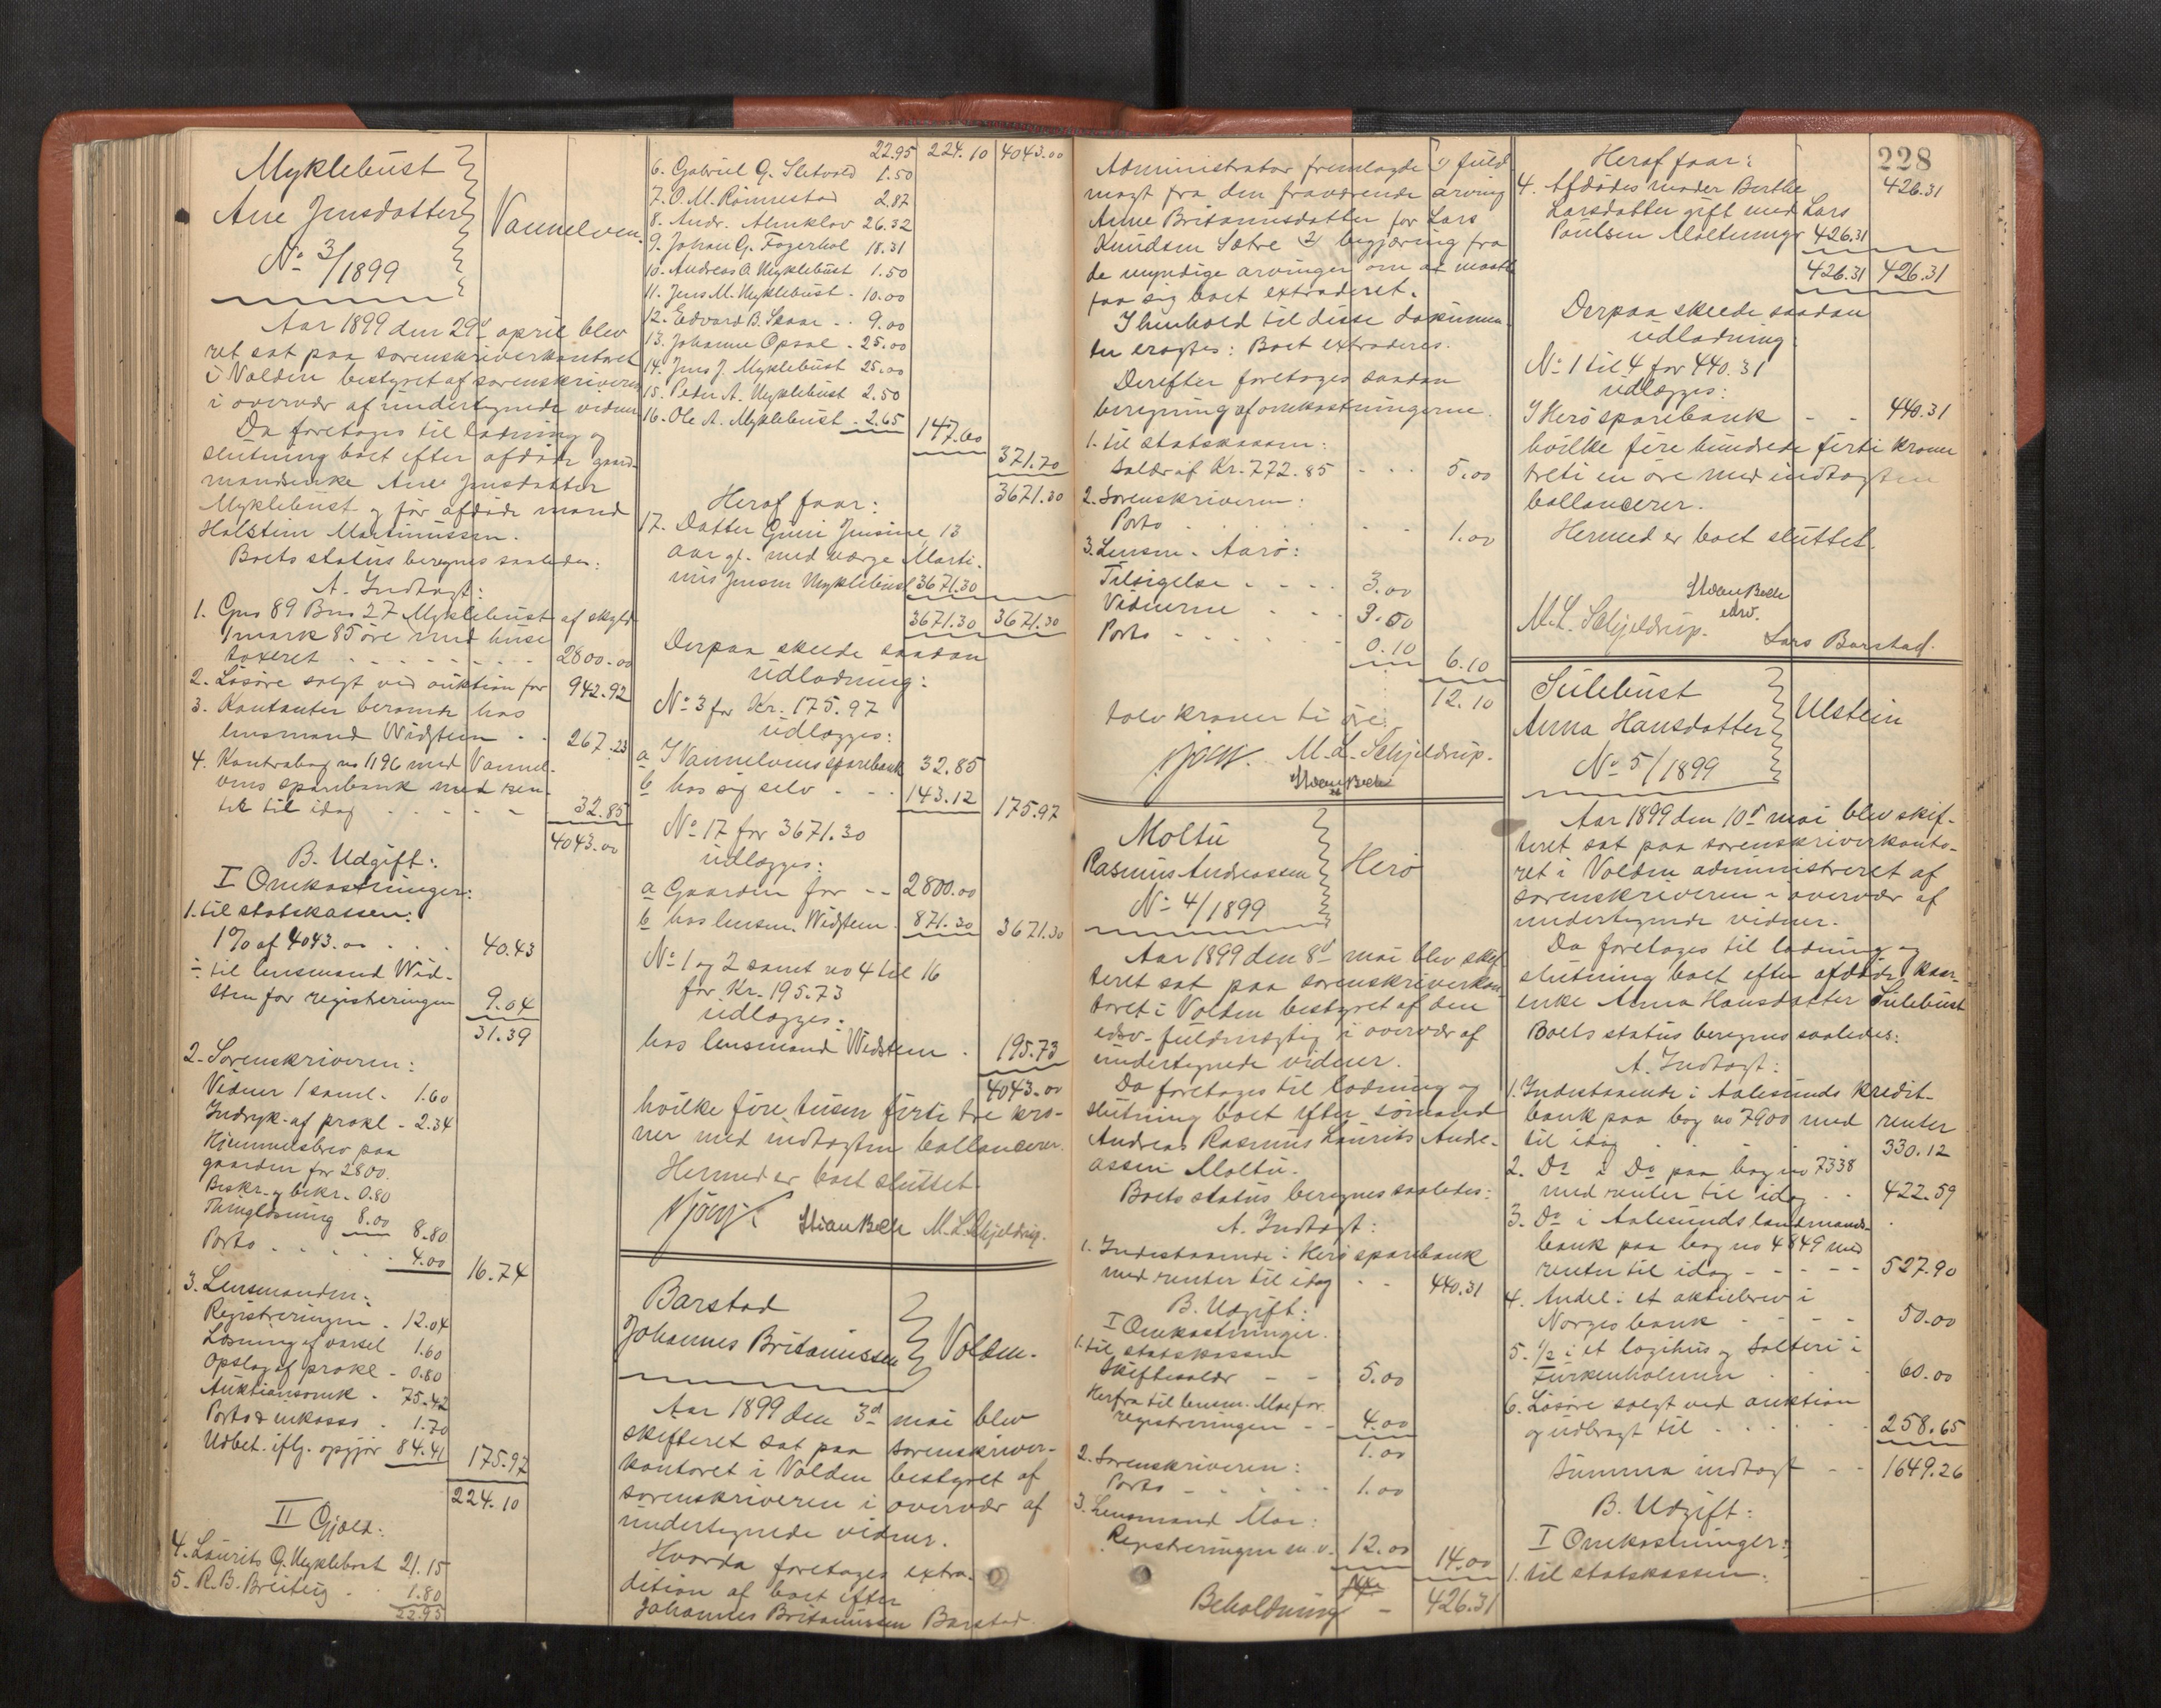 Myklebust
Ane Jensdatter
No 3/1899
Vannelven.
Aar 1899 den 29d april blev
ret sat paa sorenskriverkontoret
i Volden bestyret af sorenskriveren
i overvær af undertegnede vidner
Da foretoges til lodning og
slutning boet efter afdøde gaard-
mandsenke Ane Jensdatter
Myklebust og før afdøde mand
Holstein Martinussen.
Boets status beregnes saaledes:
A. Indtægt:
1. Gns 89 Bns 27 Myklebust af skyld
1 mark 85 øre med huse
taxeret 2800.00
2. Løsøre solgt ved auktion for 942.92
3. Kontanter beroende hos
lensmand Widsteen 267.23
4. Kontrabog no 1196 med Vannel-
vens sparebank med ren-
ter til idag 32.85
4043.00
B. Udgift:
I Omkostninger:
1. til statskassen:
1% af 4043.00 40.43
÷ til lensmand Wid-
steen for registreringen 9.04
31.39
2. Sorenskriveren:
Vidner 1 saml. 1.60
Indryk. af prokl. 2.34
Hjemmelsbrev paa
gaarden for 2800.
Beskr. og bekr. 0.80
Thinglæsning 8.00 8.80
Porto 4.00
16.74
3. Lensmanden:
Registreringen 12.04
Læsning af varsel 1.60
Opslag af prokl. 0.80
Auktionsomk. 75.42
Porto & inkasso 1.70
Udbet. iflg. opgjør 84.41 175.97
224.10
II Gjæld:
4. Laurits G. Myklebust 21.15
5. R. B. Breiteig 1.80
22.95
22.95 224.10 4043.00
6. Gabriel G. Sletvold 1.50
7. O. M. Rønnestad 2.87
8. Andr. Almklov 26.32
9. Johan G. Fagerhol 18.31
10. Andreas O. Myklebust 1.50
11. Jens M. Myklebust 10.00
12. Edvard B. Skaar 9.00
13. Johanne Opsal 25.00
14. Jens J. Myklebust 25.00
15. Peder A. Myklebust 2.50
16. Ole A. Myklebust 2.65 147.60
371.70
3671.30
Heraf faar:
17. Datter Guri Jensine 13
aar gl. med værge Marti-
nus Jensen Myklebust 3671.30
3671.30 3671.30
Derpaa skeede saadan
udlodning:
No 3 for Kr. 175.97
udlægges:
a I Vannelvens sparebank 32.85
b hos sig selv 143.12 175.97
No 17 for 3671.30
udlægges:
a Gaarden for 2800.00
b hos lensm. Widsteen 871.30 3671.30
No 1 og 2 samt no 4 til 16
for Kr. 195.73
udlægges:
hos lensmand Widsteen 195.73
4043.00
hvilke fire tusen firti tre kro-
ner med indtægten ballancerer.
Hermed er boet sluttet.
Stian Bech M. L. Schjeldrup.
Barstad
Johannes Britanussen
Volden.
Aar 1899 den 3d mai blev
skifteret sat paa sorenskriver-
kontoret i Volden bestyret af
sorenskriveren i overvær af
undertegnede vidner.
Hvorda foretoges extra-
dition af boet efter
Johannes Britanussen Barstad.
Administrator fremlagde 1) fuld
magt fra den fraværende arving
Anne Britanusdatter for Lars
Knudsen Sætre 2) begjæring fra
de myndige arvinger om at maatte
faa sig boet extraderet.
I henhold til disse dokumen-
ter eragtes: Boet extraderes.
Derefter foretoges saadan
beregning af omkostningerne.
1. til statskassen:
Saldr af Kr. 772.85 5.00
2. Sorenskriveren:
Porto 1.00
3. Lensm. Aarø:
Tilsigelse 3.00
Vidnerne 3.00
Porto 0.10
6.10
12.10
tolv kroner ti øre
M. L. Schjeldrup.
Stian Bech
Moltu
Rasmus Andreassen
No 4/1899
Herø
Aar 1899 den 8d mai blev skif
teret sat paa sorenskriverkon
toret i Volden bestyret af den
edsv. fuldmægtig i overvær af
undertegnede vidner.
Da foretoges til lodning og
slutning boet efter sømand
Andreas Rasmus Laurits Andre-
assen Moltu.
Boets status beregnes saaledes:
A. Indtægt:
1. Indestaaende i Herø sparebank
med renter til idag 440.31
B. Udgift:
I Omkostninger.
1. til statskassen
Skiftesaldr 5.00
Herfra til lensm. Moe for
registreringen 4.00
1.00
2. Sorenskriveren:
Porto 1.00
3. Lensmand Moe:
Registreringen m.v. 12.00
14.00
Beholdning 426.31
228
Heraf faar:
426.31
4. Afdødes moder Berthe
Larsdatter gift med Lars
Paulsen Moltumyr 426.31
426.31 426.31
Derpaa skeede saadan
udlodning:
No 1 til 4 for 440.31
udlægges:
I Herø sparebank 440.31
hvilke fire hundrede firti kroner
treti en øre med indtægten
ballancerer.
Hermed er boet sluttet.
Stian Bech
edsv.
M. L. Schjeldrup. Lars Barstad.
Sulebust
Anna Hansdatter
No 5/1899
Ulstein
Aar 1899 den 10d mai blev skif-
teret sat paa sorenskriverkonto-
ret i Volden administreret af
sorenskriveren i overvær af
undertegnede vidner.
Da foretoges til lodning og
slutning boet efter afdøde kaar-
enke Anna Hansdatter Sulebust
Boets status beregnes saaledes:
A. Indtægt:
1. Indestaaende i Aalesunds kredit-
bank paa bog no 7900 med renter
til idag 330.12
2. Do i Do paa bog no 7338
med renter til idag 422.59
3. Do i Aalesunds landmands-
bank paa bog no 4849 med
renter til idag 527.90
4. Andel i et aktiebrev i
Norges bank 50.00
5. 1/2 i et logihus og Salteri i
Furkenholmen 60.00
6. Løsøre solgt ved auktion
og udbragt til 258.65
Summa indtægt 1649.26
B. Udgift:
I Omkostninger:
1. til statskassen: